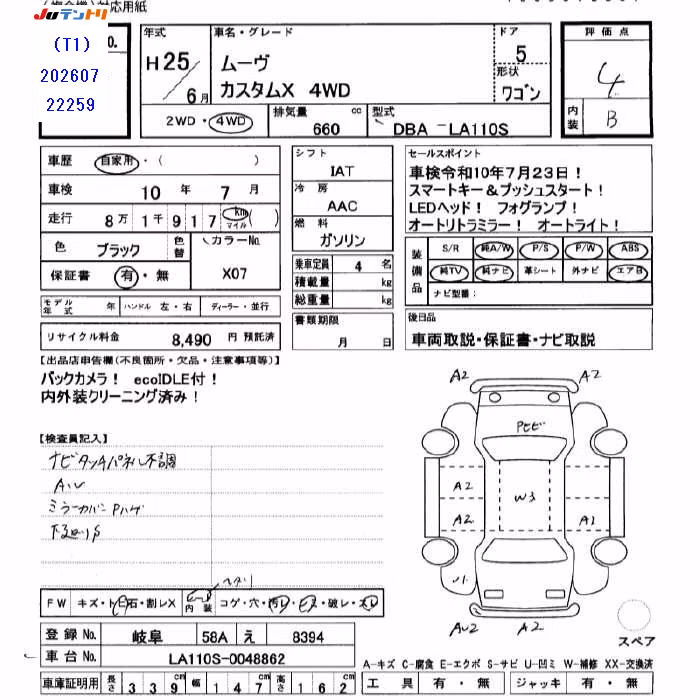 Juテントリ 対応用紙
(T1)
202607
22259
年式 H25/6月
車名・グレード ムーヴ カスタムX 4WD
ドア 5
形状 ワゴン
評価点 4
内装 B
2WD・4WD
排気量 660 cc
型式 DBA-LA110S
車歴 自家用・( )
車検 10年 7月
走行 8万1千917 km マイル ( )
色 ブラック 色替
カラーNo. X07
保証書 有・無
モデル年式 年 ハンドル 左・右 ディーラー・並行
リサイクル料金 8,490 円 預託済
シフト IAT
冷房 AAC
燃料 ガソリン
乗車定員 4 名
積載量 kg
総重量 kg
書類期限 月 日
セールスポイント
車検令和10年7月23日!
スマートキー&プッシュスタート!
LEDヘッド! フォグランプ!
オートリトラミラー! オートライト!
装備品 S/R 純A/W P/S P/W ABS
純TV 純ナビ 革シート 外ナビ エアB
ナビ型番:
後日品
車両取説・保証書・ナビ取説
【出品店申告欄(不良箇所・欠品・注意事項等)】
バックカメラ! ecoIDLE付!
内外装クリーニング済み!
【検査員記入】
ナビタッチパネル不調
AU
ミラーカバーPハゲ
下廻りS
A2 A2
Pとビ
A2
W3
A2 A1
AU2 A2
スペア
FW キズ・トビ石・割レX
内装 コゲ・穴・汚レ・キズ・破レ・スレ
登録No. 岐阜 58A え 8394
車台No. LA110S-0048862
車庫証明用 長さ 339cm 幅 147cm 高さ 162cm
A-キズ C-腐食 E-エクボ S-サビ U-凹ミ W-補修 XX-交換済
工具 有・無 ジャッキ 有・無